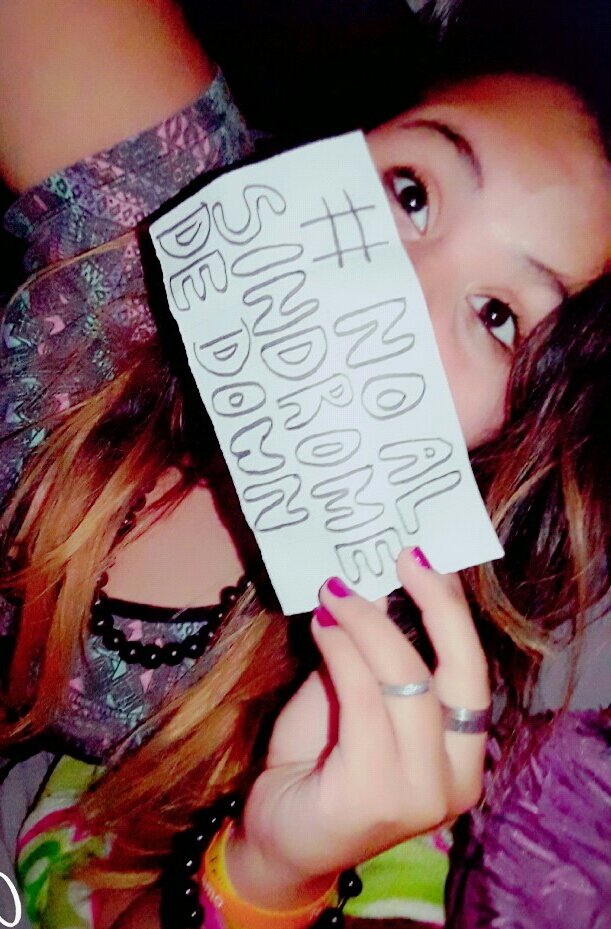 # NO AL
SINDROME
DE DOWN